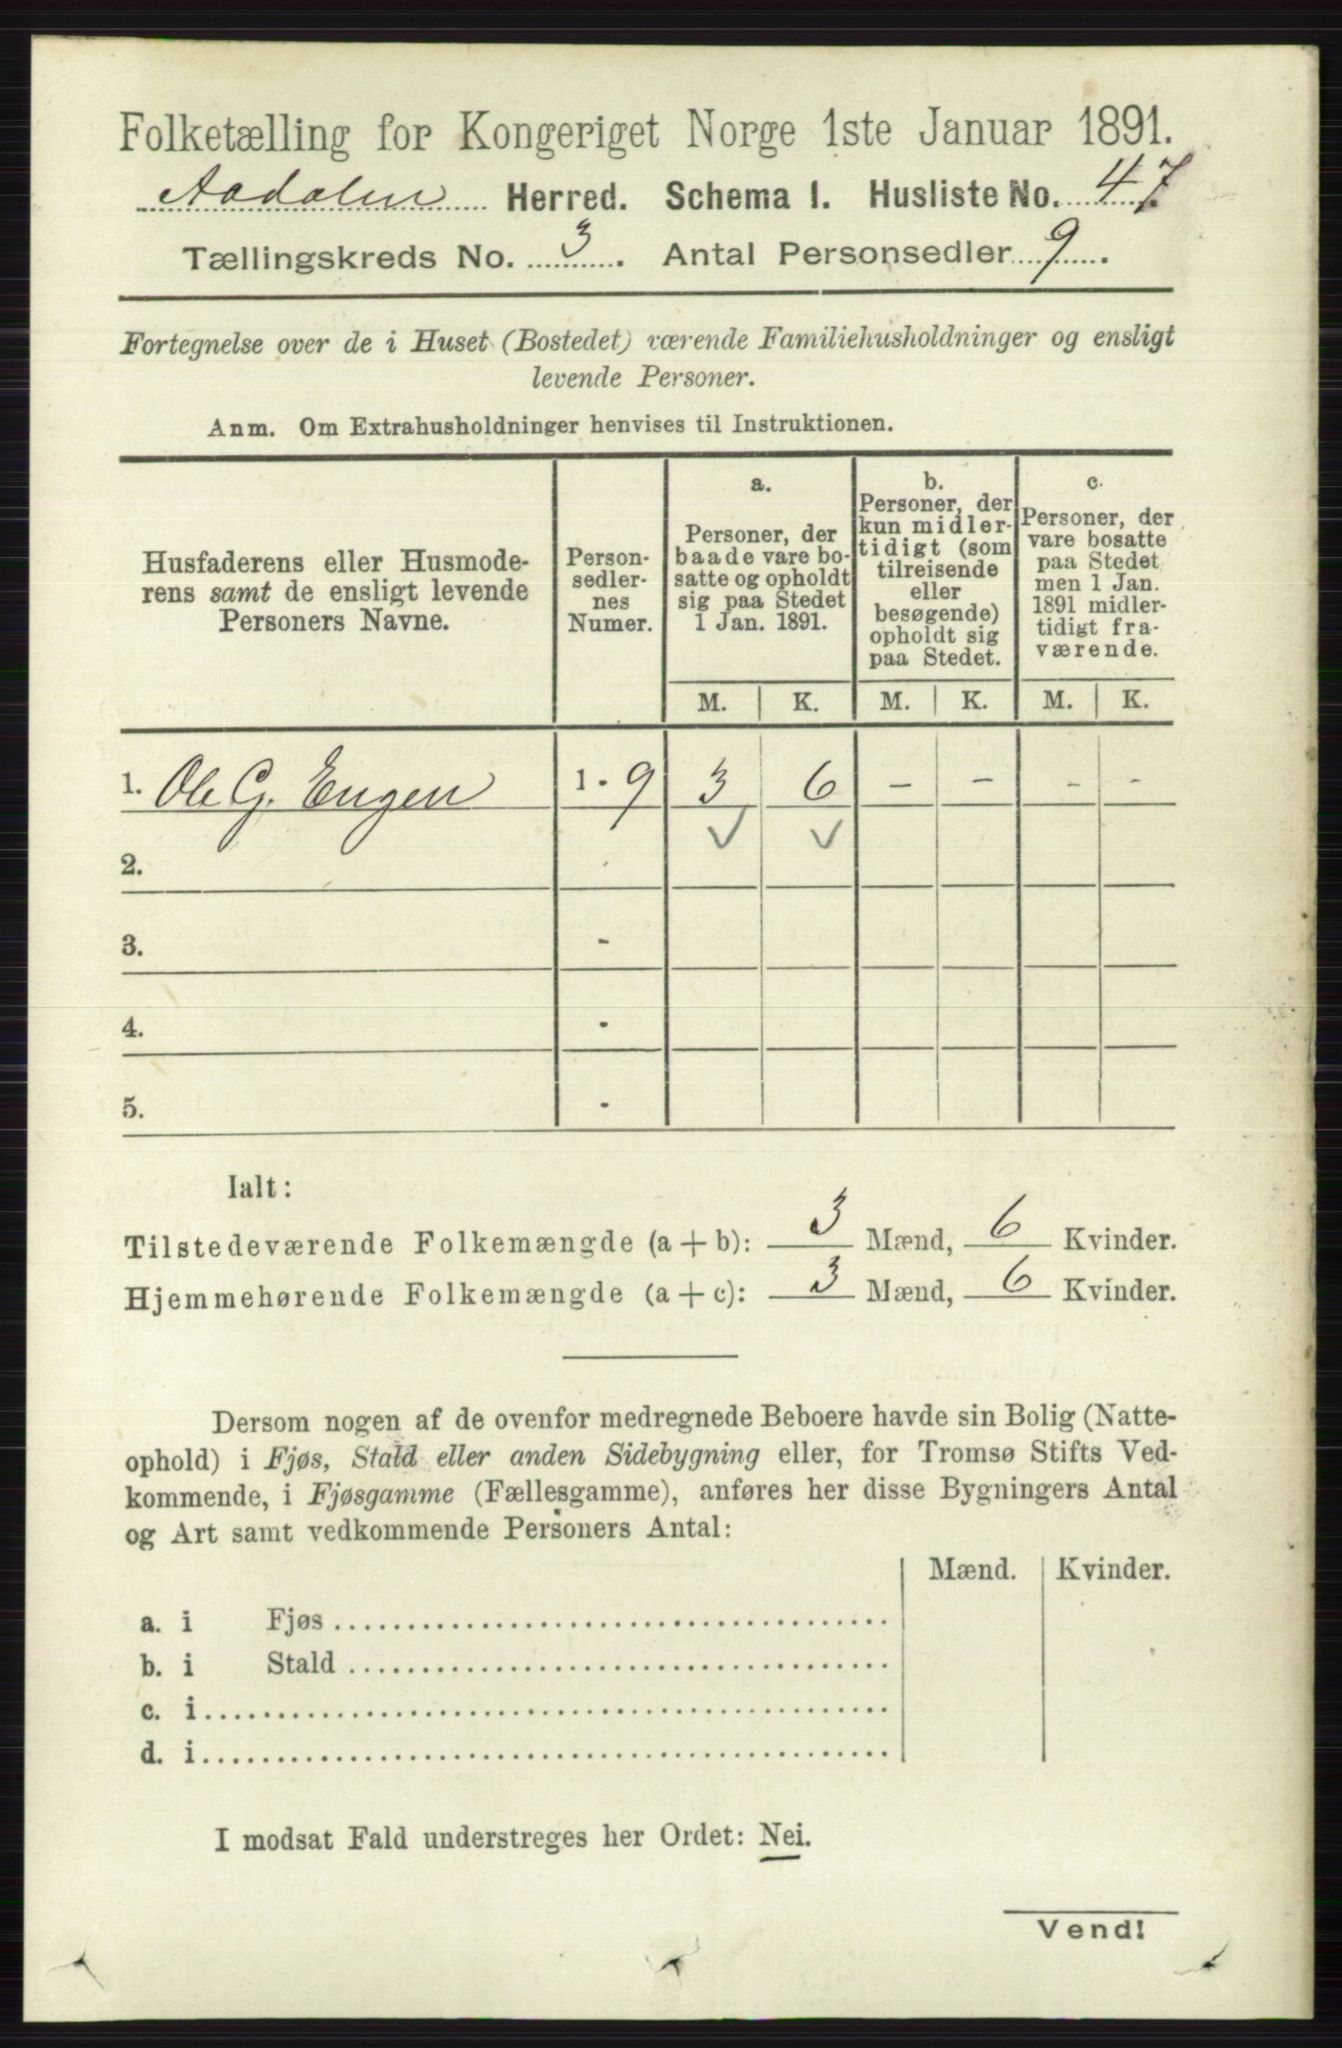 Folketælling for Kongeriget Norge 1ste Januar 1891.
Aadalen Herred. Schema I. Husliste No. 47
Tællingskreds No. 3. Antal Personsedler 9.
Fortegnelse over de i Huset (Bostedet) værende Familiehusholdninger og ensligt
levende Personer.
Anm. Om Extrahusholdninger henvises til Instruktionen.
Husfaderens eller Husmode-
rens samt de ensligt levende
Personers Navne.
Person-
sedler-
nes
Numer.
a.
Personer, der
baade vare bo-
satte og opholdt
sig paa Stedet
1 Jan. 1891.
b.
Personer, der
kun midler-
tidigt (som
tilreisende
eller
besøgende)
opholdt sig
paa Stedet.
c.
Personer, der
vare bosatte
paa Stedet
men 1 Jan.
1891 midler-
tidigt fra-
værende.
M. K. M. K. M. K.
1. Ole G. Engen 1 - 9 3 6 - - - -
2.
3. -
4. -
5. -
Ialt:
Tilstedeværende Folkemængde (a + b): 3 Mænd, 6 Kvinder.
Hjemmehørende Folkemængde (a + c): 3 Mænd, 6 Kvinder.
Dersom nogen af de ovenfor medregnede Beboere havde sin Bolig (Natte-
ophold) i Fjøs, Stald eller anden Sidebygning eller, for Tromsø Stifts Ved-
kommende, i Fjøsgamme (Fællesgamme), anføres her disse Bygningers Antal
og Art samt vedkommende Personers Antal:
Mænd. Kvinder.
a. i Fjøs
b. i Stald
c. i
d. i
I modsat Fald understreges her Ordet: Nei.
Vend!